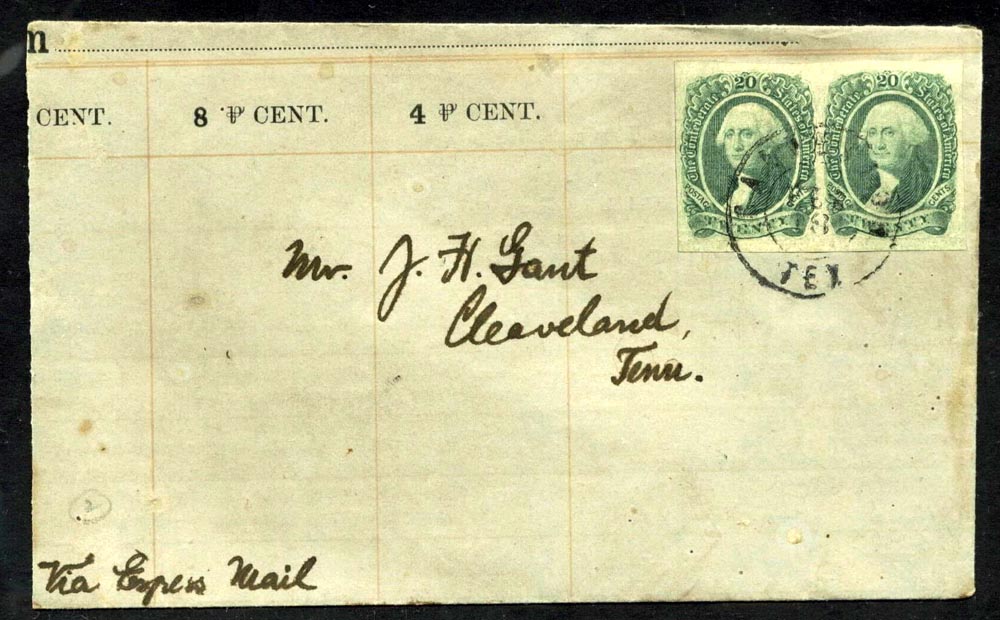 m
CENT. 8 ⅌ CENT. 4 ⅌ CENT.
20 20
The Confederate States of America The Confederate States of America
POSTAGE CENTS
TWENTY TWENTY
TEX
Mr. J. H. Gant
Cleaveland,
Tenn.
2
Via Express Mail